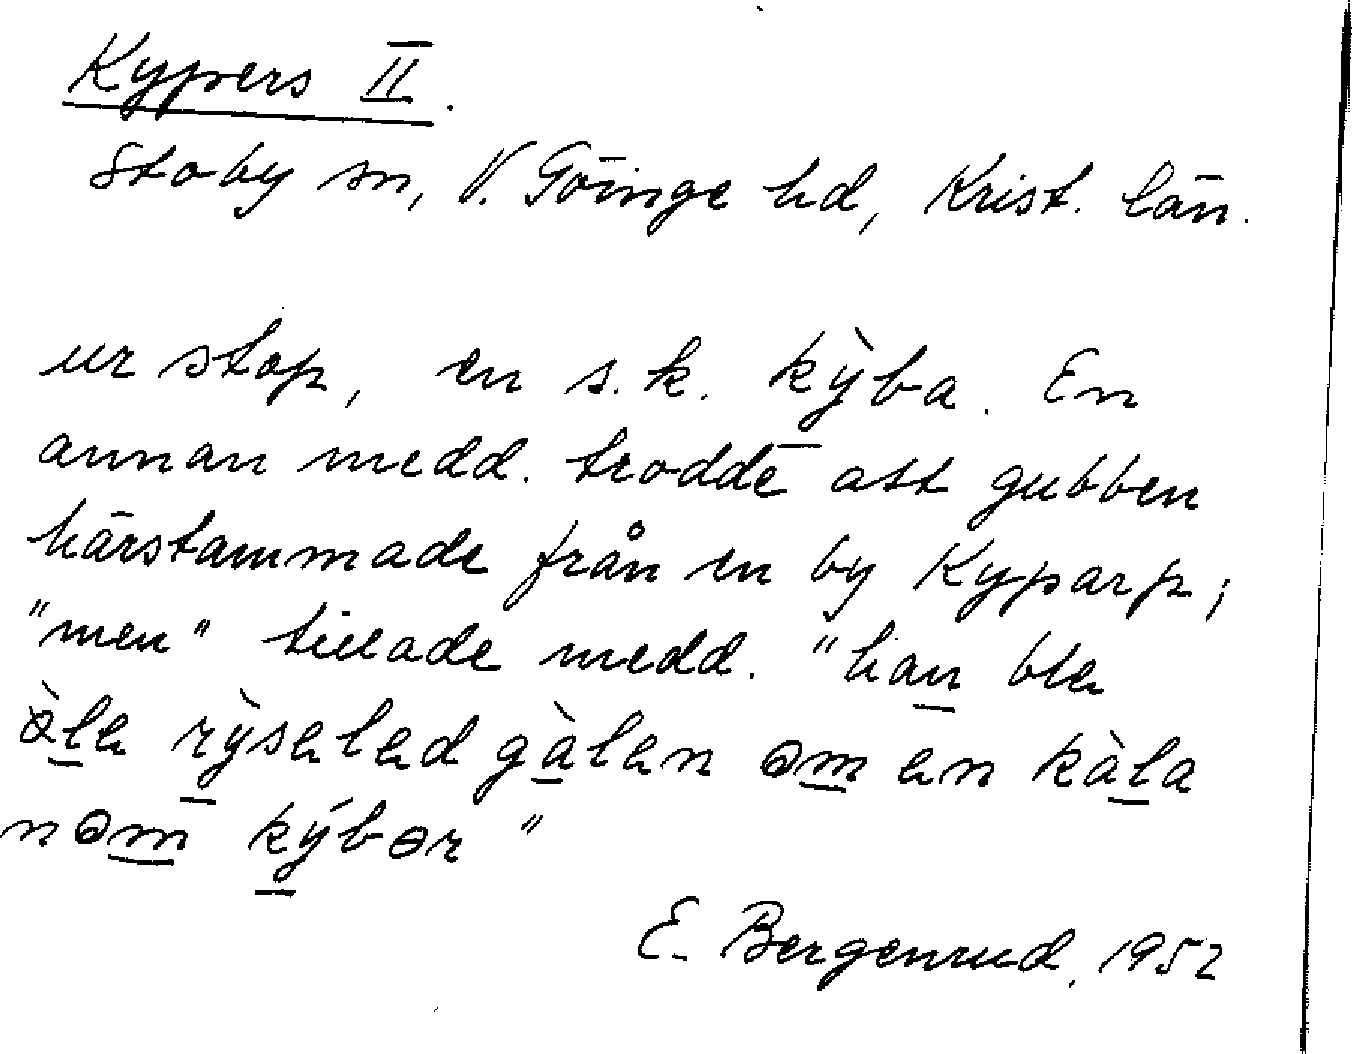 Kypers II.
Stoby sn, V. Göinge hd, Krist. län.
ur stop, en s.k. kỳba. En
annan medd. trodde att gubben
härstammade från en by Kyparp;
"men" tillade medd. "han ble
àle rỳseled gàlen əm en kàla
nəm kýbər"
E. Bergenrud, 1952